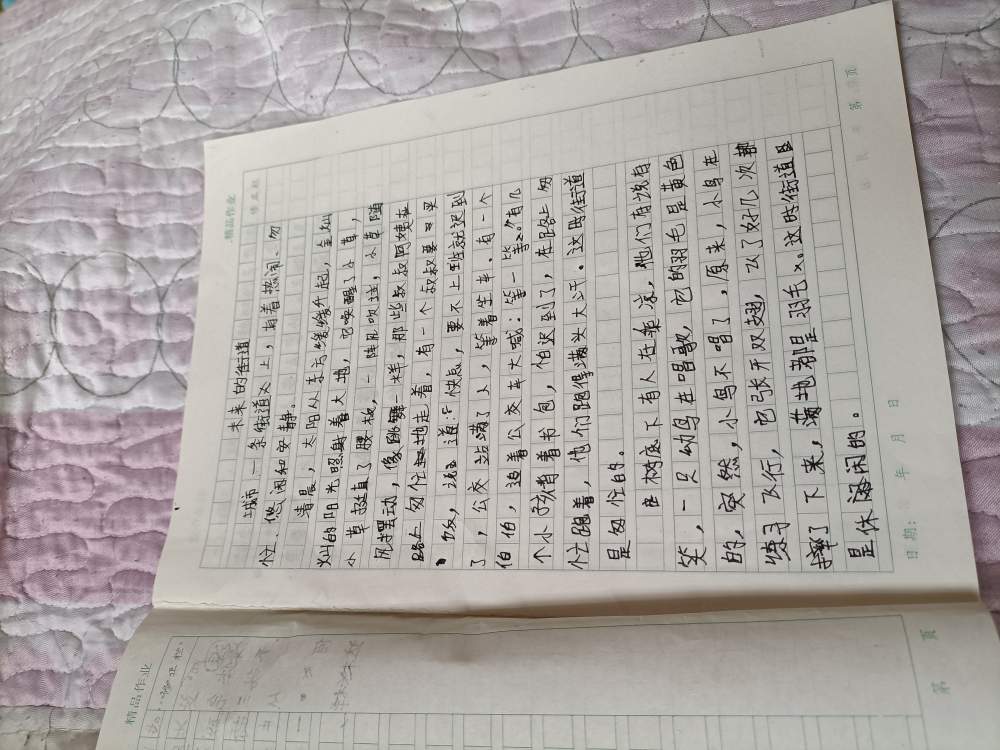 精品作业
未来的街道
城市一条街道义上,有着热闹、匆
忙、悠闲和安静。
清晨,太阳从东方缓缓升起,金灿
灿的阳光照射着大地,它唤醒了小草,
小草挺直了腰板,一阵风吹过,小草随
风摆动,像跳舞一样,那些叔叔阿姨在
路上匆忙地走着,有一个叔叔要买
饭,说道:快点,要不上班就迟到
了,公交站满了人,等着坐车,有一个
伯伯,追着公交车大喊:等一等。有几
个小孩背着书包,怕迟到了,在路上匆
忙跑着,他们跑得满头大汗。这时街道
是匆忙的。
在树底下有人在乘凉,他们有说有
笑,一只幼鸟在唱歌,它的羽毛是黄色
的,突然,小鸟不唱了,原来,小鸟在
练习飞行,它张开双翅,飞了好几次都
摔了下来,满地都是羽毛。这时街道
是休闲的。
日期: 年 月 日
第 页
精品作业
第 页